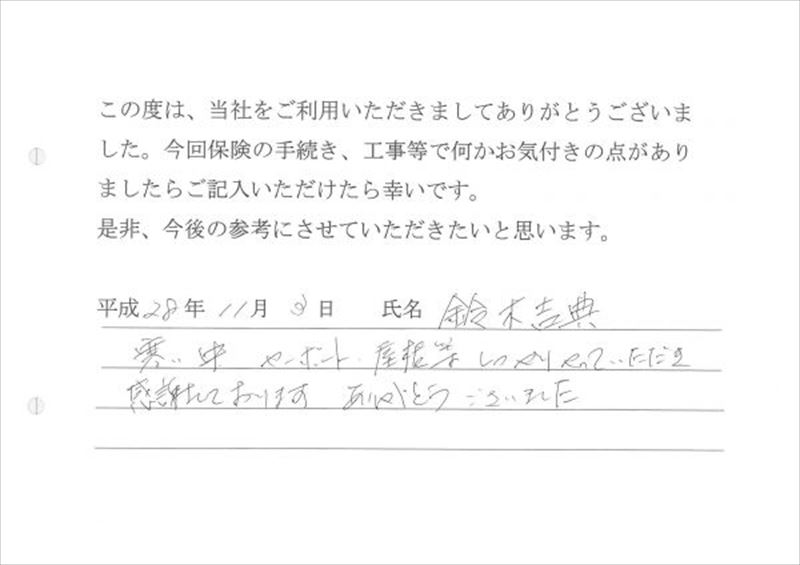 この度は、当社をご利用いただきましてありがとうございま
した。今回保険の手続き、工事等で何かお気付きの点があり
ましたらご記入いただけたら幸いです。
是非、今後の参考にさせていただきたいと思います。
平成28年 11月 3日 氏名 鈴木吉典
寒い中 カーポート・屋根等 しっかりやっていただき
感謝しております ありがとうございました